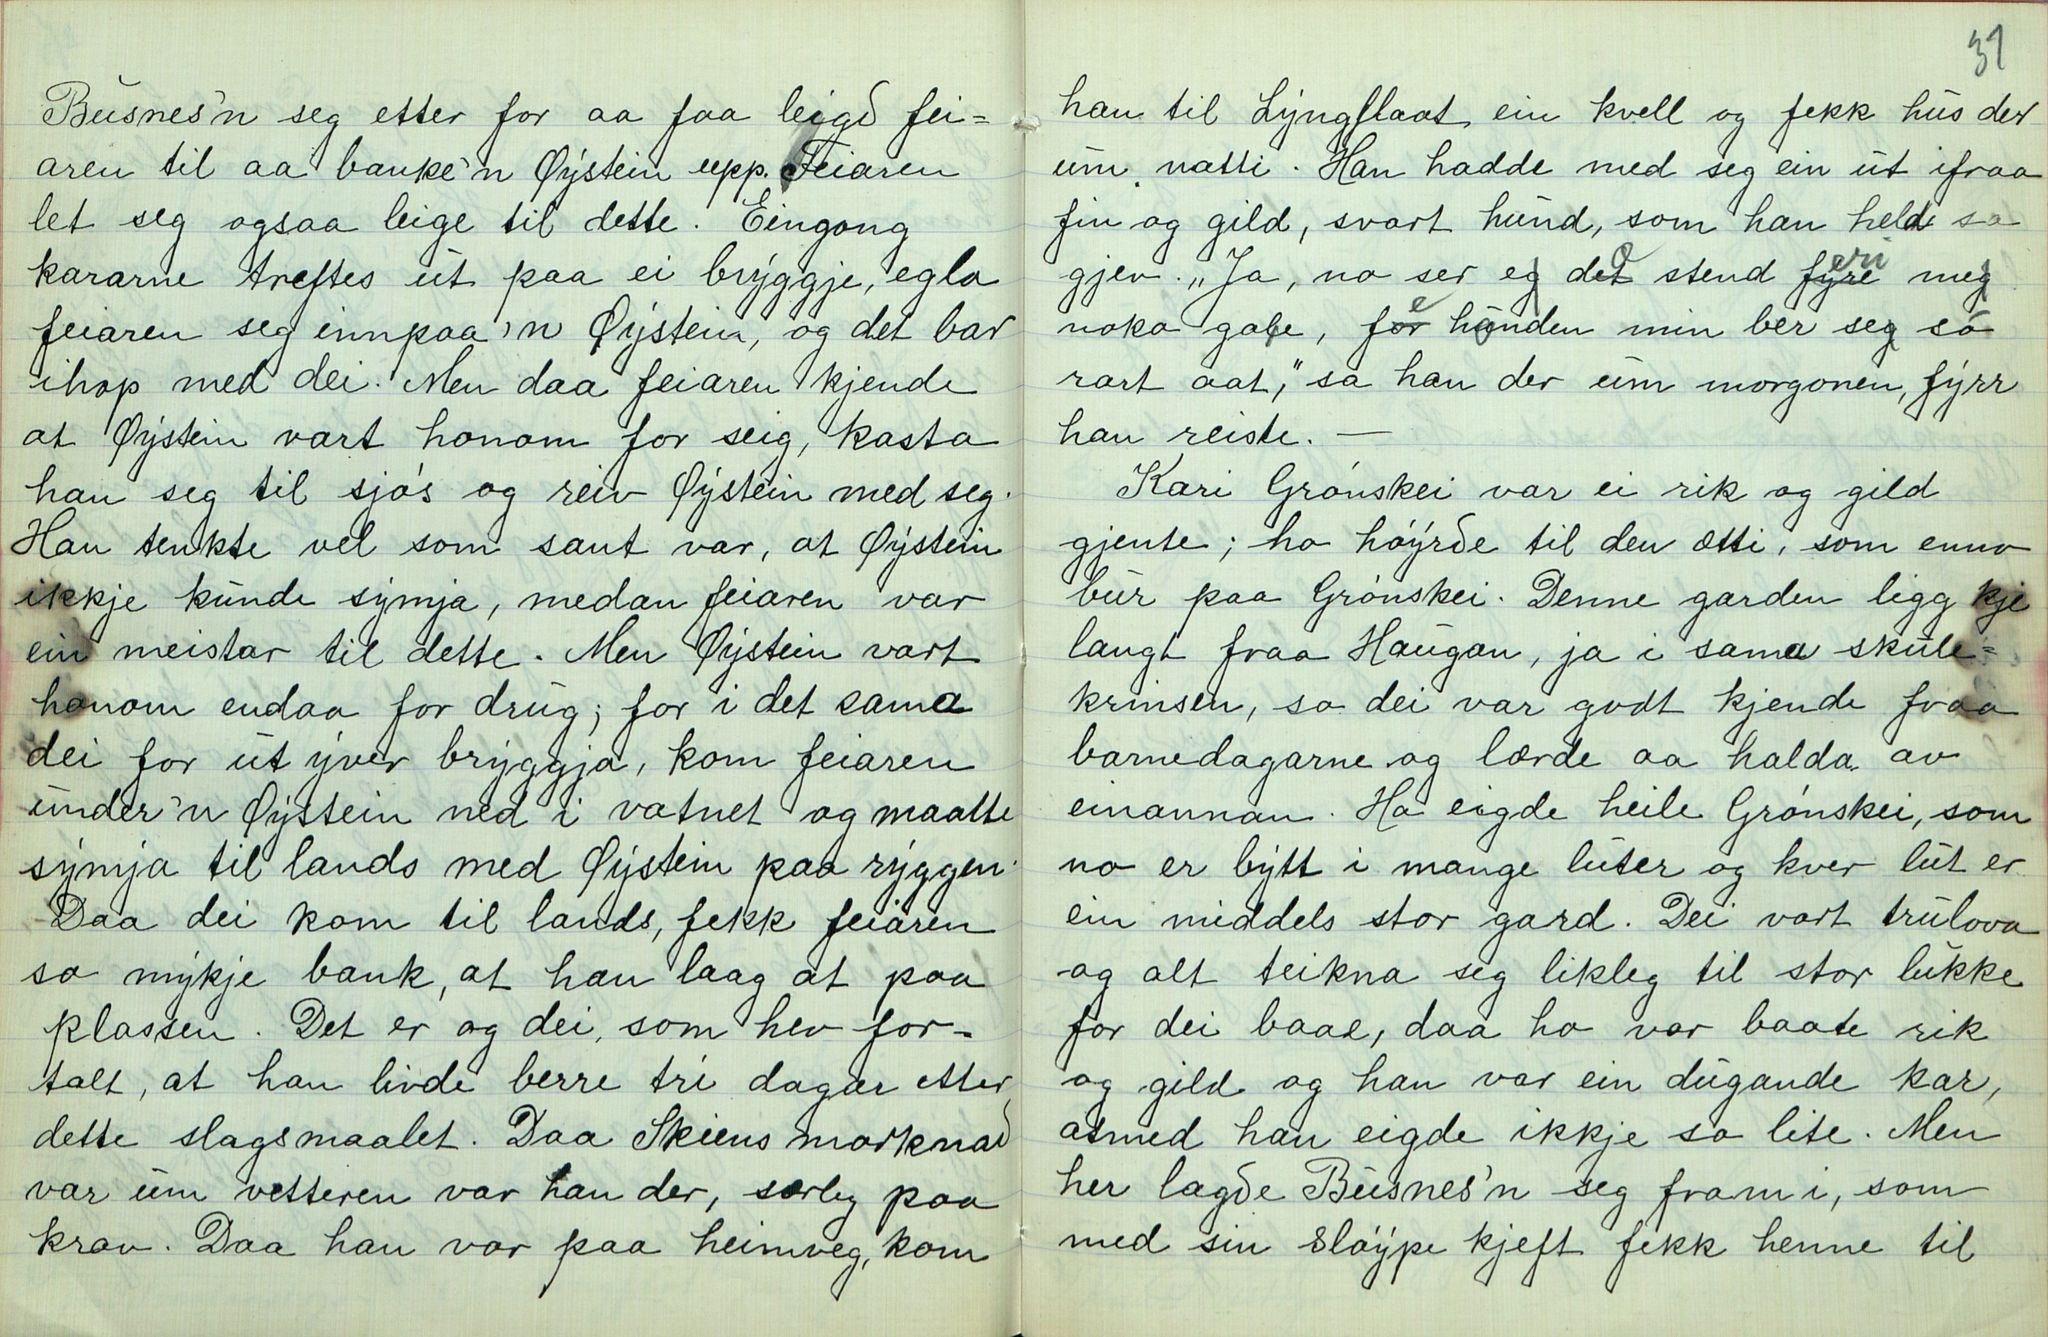 Busnes'n seg etter for aa faa leigd fei=
aren til aa banke'n Øystein upp. Feiaren
let seg ogsaa leige til dette. Eingong
kararne treftes ut paa ei bryggje, egla
feiaren seg innpaa'n Øystein, og det bar
ihop med dei. Men daa feiaren kjende
at Øystein vart honom for seig, kasta
han seg til sjøs og reiv Øystein med seg.
Han tenkte vel som sant var, at Øystein
ikkje kunde symja, medan feiaren var
ein meistar til dette. Men Øystein vart
honom endaa for drug; for i det sama
dei for ut yver bryggja, kom feiaren
under'n Øystein ned i vatnet og maatte
symja til lands med Øystein paa ryggen.
Daa dei kom til lands, fekk feiaren
so mykje bank, at han laag at paa
plassen. Det er og dei, som hev for-
talt, at han livde berre tri dagar etter
dette slagsmaalet. Daa Skiens marknad
var um vetteren var han der, særleg paa
krav. Daa han var paa heimveg, kom
31
han til Lyngflaat ein kvell og fekk hus der
um natti. Han hadde med seg ein ut ifraa
fin og gild, svart hund, som han heldt so
gjev. „Ja, no ser eg det stend fyre meg
noko gale, for hunden min ber seg so
rart aat," sa han der um morgonen, fyrr
han reiste. —
Kari Grønskei var ei rik og gild
gjente; ho høyrde til den ætti, som enno
bur paa Grønskei. Denne garden ligg kje
langt fraa Haugan, ja i sama skule=
krinsen, so dei var godt kjende fraa
barnedagarne og lærde aa halda av
einannan. Ho eigde heile Grønskei, som
no er bytt i mange luter og kver lut er
ein middels stor gard. Dei vart trulova
og alt teikna seg likleg til stor lukke
for dei baae, daa ho var baate rik
og gild og han var ein dugande kar,
asmed han eigde ikkje so lite. Men
her lagde Busnes'n seg fram i, som
med sin sløype kjeft fekk henne til